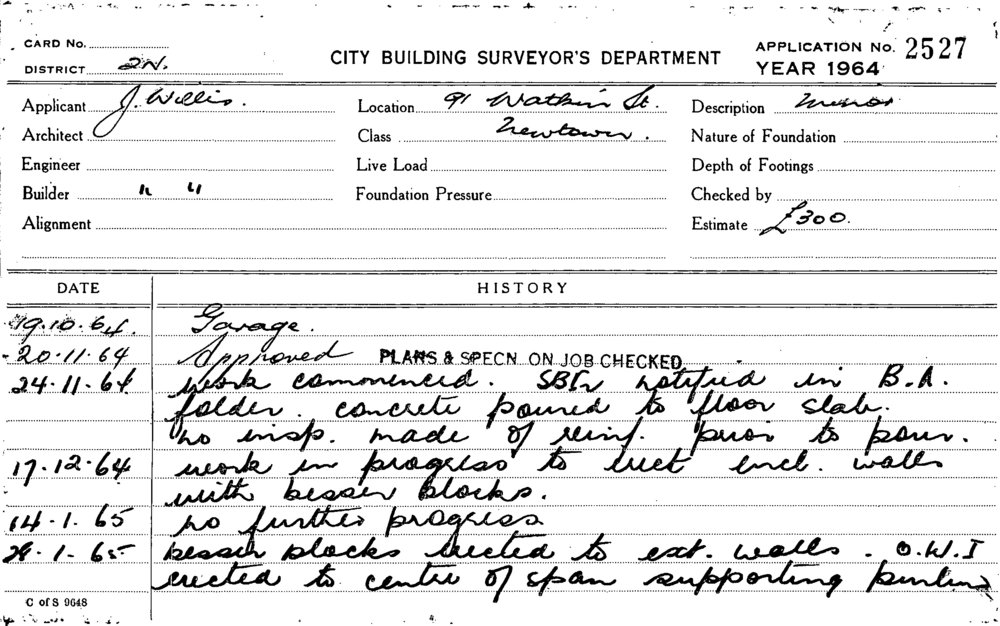 CARD No.
DISTRICT 2N.
CITY BUILDING SURVEYOR'S DEPARTMENT
APPLICATION No. 2527
YEAR 1964
Applicant J. Willis.
Location 91 Watkin St.
Description Minor
Architect
Class Newtown.
Nature of Foundation
Engineer
Live Load
Depth of Footings
Builder " "
Foundation Pressure
Checked by
Alignment
Estimate £300.
DATE HISTORY
19.10.64. Garage.
20.11.64 Approved PLANS & SPECN ON JOB CHECKED
24.11.64 work commenced. notified in B.A.
folder. concrete poured to floor slab.
no insp. made of reinf. prior to pour.
17.12.64 work in progress to erect encl. walls
with besser blocks.
14.1.65 no further progress
28.1.65 besser blocks erected to ext. walls. O.W.I
erected to centre of span supporting purlins
C of S 9648